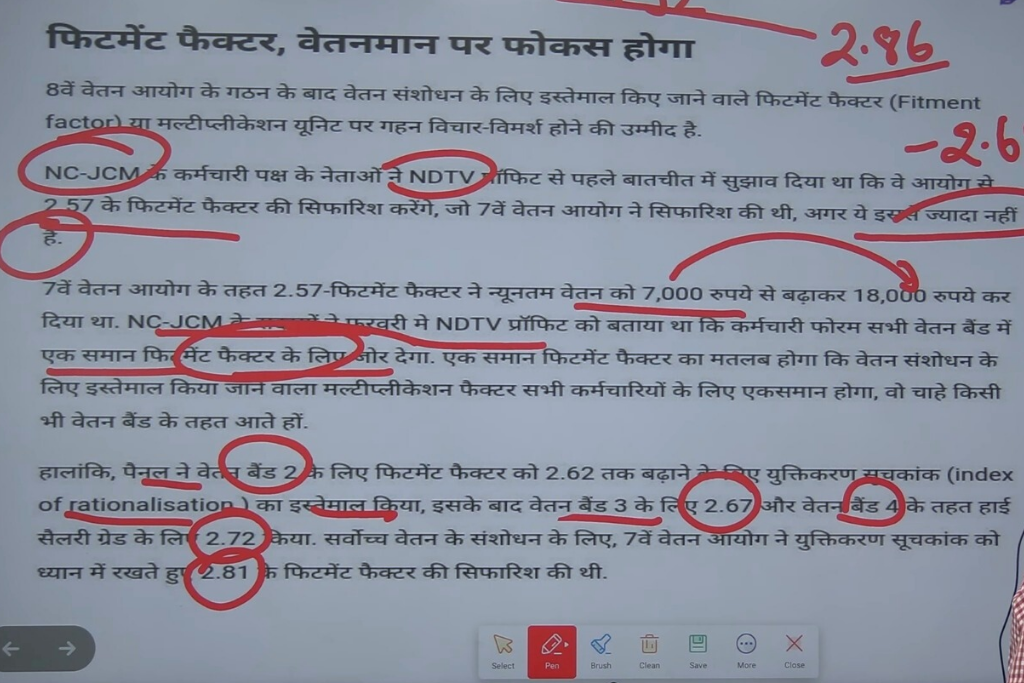 फिटमेंट फैक्टर, वेतनमान पर फोकस होगा
2.86
8वें वेतन आयोग के गठन के बाद वेतन संशोधन के लिए इस्तेमाल किए जाने वाले फिटमेंट फैक्टर (Fitment
factor) या मल्टीप्लीकेशन यूनिट पर गहन विचार-विमर्श होने की उम्मीद है.
-2.6
NC-JCM के कर्मचारी पक्ष के नेताओं ने NDTV प्रॉफिट से पहले बातचीत में सुझाव दिया था कि वे आयोग से
2.57 के फिटमेंट फैक्टर की सिफारिश करेंगे, जो 7वें वेतन आयोग ने सिफारिश की थी, अगर ये इससे ज्यादा नहीं
है.
7वें वेतन आयोग के तहत 2.57-फिटमेंट फैक्टर ने न्यूनतम वेतन को 7,000 रुपये से बढ़ाकर 18,000 रुपये कर
दिया था. NC-JCM के ने फरवरी मे NDTV प्रॉफिट को बताया था कि कर्मचारी फोरम सभी वेतन बैंड में
एक समान फिटमेंट फैक्टर के लिए जोर देगा. एक समान फिटमेंट फैक्टर का मतलब होगा कि वेतन संशोधन के
लिए इस्तेमाल किया जाने वाला मल्टीप्लीकेशन फैक्टर सभी कर्मचारियों के लिए एकसमान होगा, वो चाहे किसी
भी वेतन बैंड के तहत आते हों.
हालांकि, पैनल ने वेतन बैंड 2 के लिए फिटमेंट फैक्टर को 2.62 तक बढ़ाने के लिए युक्तिकरण सूचकांक (index
of rationalisation ) का इस्तेमाल किया, इसके बाद वेतन बैंड 3 के लिए 2.67 और वेतन बैंड 4 के तहत हाई
सैलरी ग्रेड के लिए 2.72 किया. सर्वोच्च वेतन के संशोधन के लिए, 7वें वेतन आयोग ने युक्तिकरण सूचकांक को
ध्यान में रखते हुए 2.81 के फिटमेंट फैक्टर की सिफारिश की थी.
Select Pen Brush Clean Save More Close